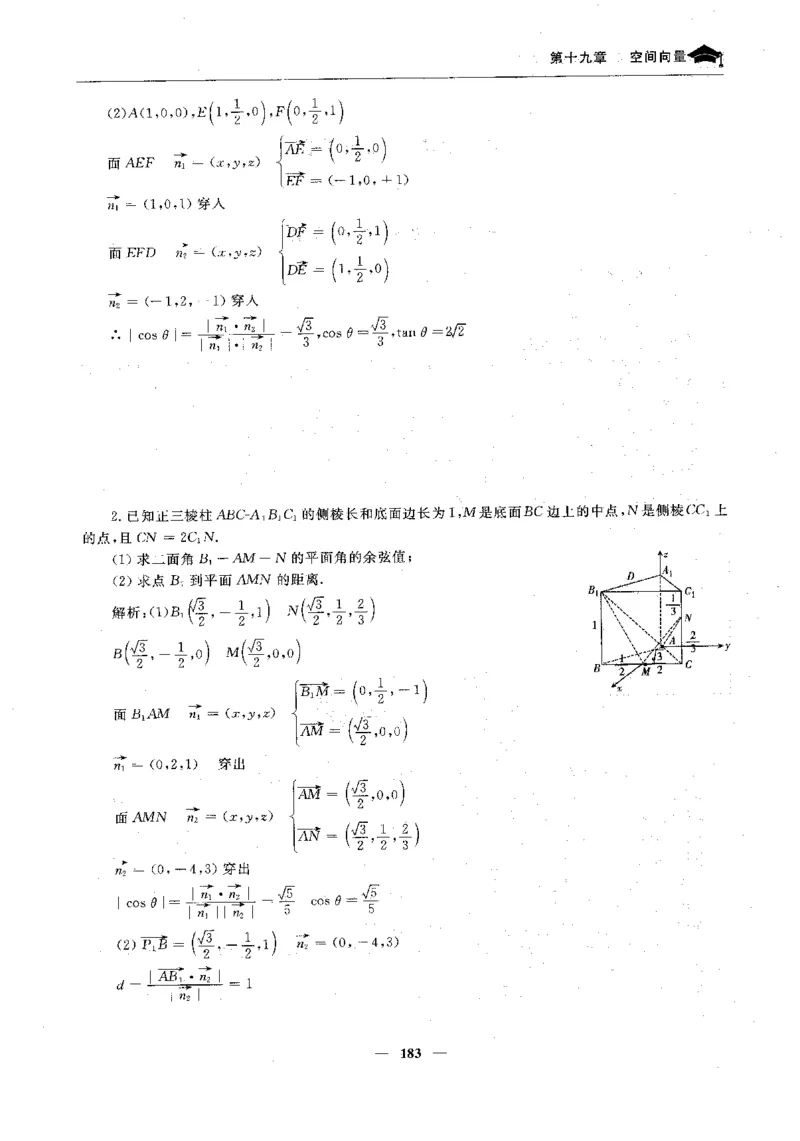 第十九章 空间向量
(2)A(1,0,0),E(1,1/2,0),F(0,1/2,1)
面 AEF n₁⃗ = (x,y,z) { AE⃗ = (0,1/2,0)
EF⃗ = (-1,0,+1)
n₁⃗ = (1,0,1) 穿入
面 EFD n₂⃗ = (x,y,z) { DF⃗ = (0,1/2,1)
DE⃗ = (1,1/2,0)
n₂⃗ = (-1,2,-1) 穿入
∴ |cos θ| = |n₁⃗ · n₂⃗| / |n₁⃗|·|n₂⃗| = √3/3, cos θ = √3/3, tan θ = 2√2
2. 已知正三棱柱 ABC-A₁B₁C₁ 的侧棱长和底面边长为 1,M 是底面 BC 边上的中点,N 是侧棱 CC₁ 上
的点,且 CN = 2C₁N.
(1) 求二面角 B₁-AM-N 的平面角的余弦值;
(2) 求点 B₁ 到平面 AMN 的距离.
解析:(1)B₁(√3/2,-1/2,1) N(√3/2,1/2,2/3)
B(√3/2,-1/2,0) M(√3/2,0,0)
面 B₁AM n₁⃗ = (x,y,z) { B₁M⃗ = (0,1/2,-1)
AM⃗ = (√3/2,0,0)
n₁⃗ = (0,2,1) 穿出
面 AMN n₂⃗ = (x,y,z) { AM⃗ = (√3/2,0,0)
AN⃗ = (√3/2,1/2,2/3)
n₂⃗ = (0,-4,3) 穿出
|cos θ| = |n₁⃗ · n₂⃗| / |n₁⃗||n₂⃗| = √5/5 cos θ = √5/5
(2) P₁B⃗ = (√3/2,-1/2,1) n₂⃗ = (0,-4,3)
d = |AB₁⃗ · n₂⃗| / |n₂⃗| = 1
z
D
A₁
B₁
C₁
1/3
N
1
A
2/3
y
B
1/2
M
√3/2
C
x
— 183 —